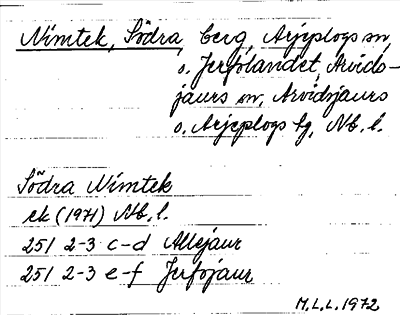 Nimtek, Södra, berg, Arjeplogs sn,
o. Jerfölandet, Arvids-
jaurs sn, Arvidsjaurs
o. Arjeplogs tg, Nb. l.
Södra Nimtek
ek (1971) Nb. l.
25I 2-3 c-d Allejaur
25I 2-3 e-f Jerfojaur
M.L.L. 1972